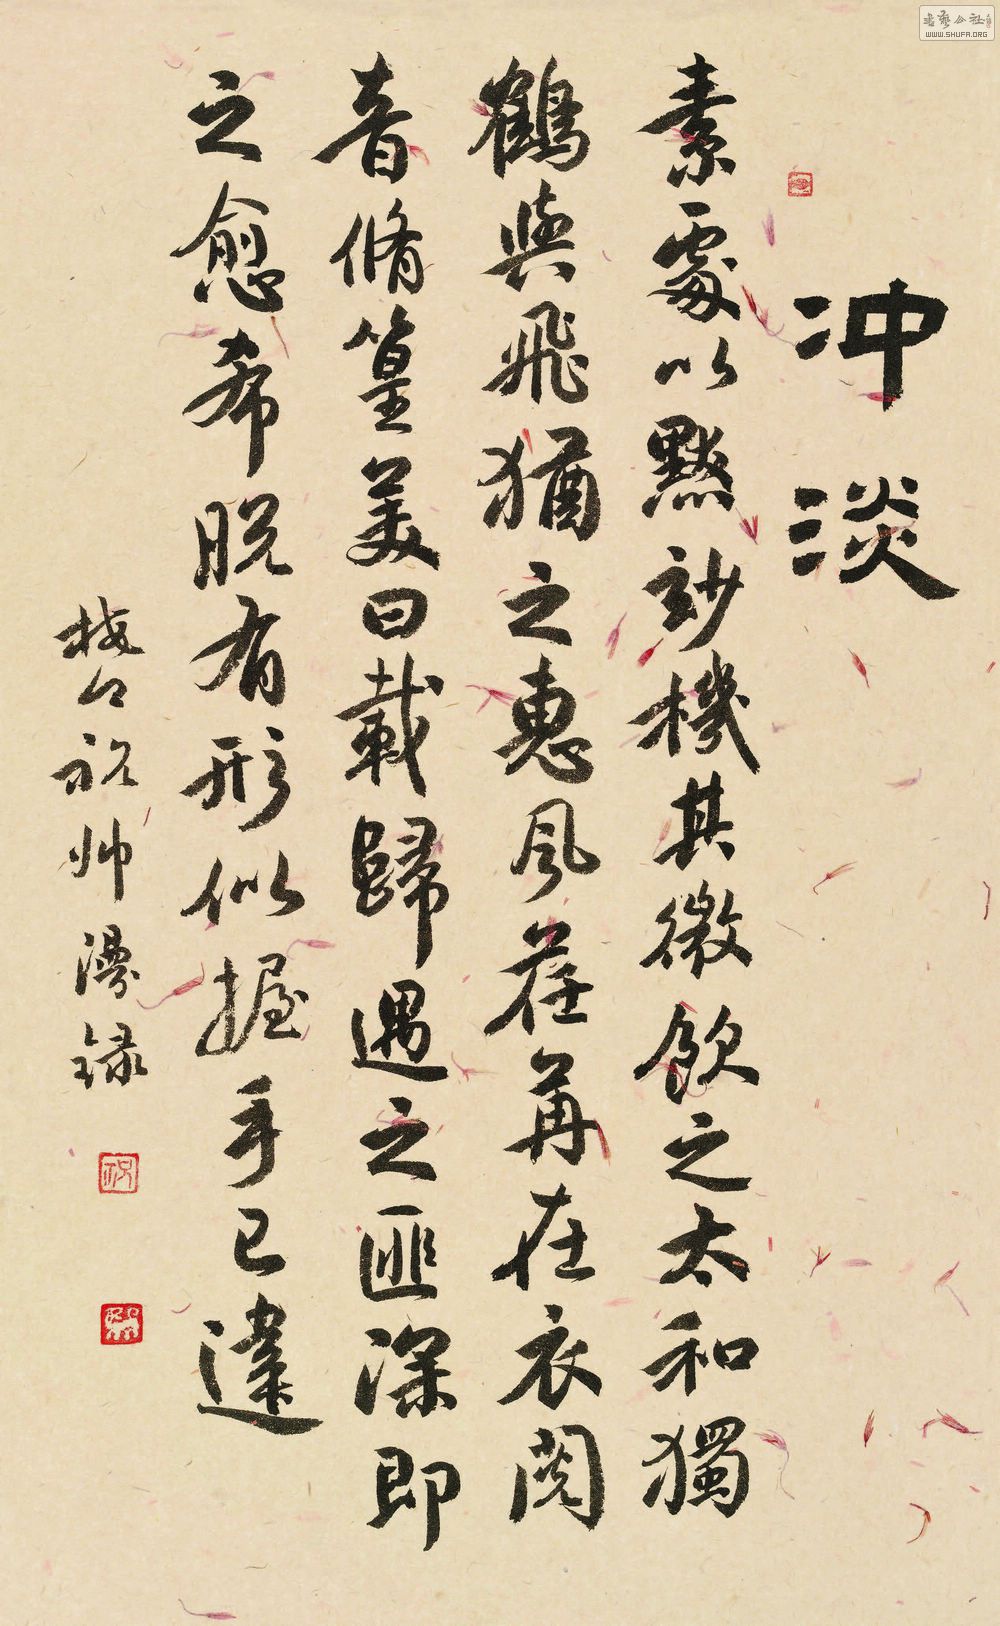 書藝公社
WWW.SHUFA.ORG
冲淡
素處以默玅機其微飲之太和獨
鶴與飛猶之惠風荏苒在衣閱
音脩篁美曰載歸遇之匪深即
之愈希脱有形似握手已違
祝帅漫録